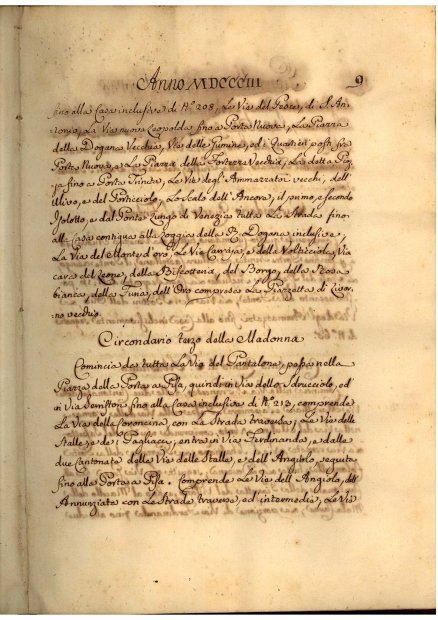 Anno MDCCCIII 9
fino alla Casa inclusive di N.° 208, La Via del Pesce, di S. An=
tonio, La Via nuova Leopolda fino a Porta Nuova, La Piazza
della Dogana Vecchia, Via delle Fumine, ed i Quartieri posti fra
Porta Nuova, e La Piazza della Fortezza Vecchia, La detta
fino a Porta Trinita, Le Vie degl'Ammazzatoi vecchi, dell'
Ulivo, e del Porticciolo, Lo Scalo dell'Ancore, il primo, e secondo
Isolotto, e dal Ponte Lungo di Venezia tutta La Strada fino
alla Casa contigua alla Loggia della R. Dogana inclusive,
La Via del Monte d'oro, La Via Carraja, e della Volticciola, Via
cava del Leone, della Biscotteria, del Borgo, della Rosa
bianca, della Luna, dell'Oro compresa La Piazzetta di Livor=
no vecchio.
Circondario terzo della Madonna
Comincia da tutta La Via del Pantalone, passa nella
Piazza della Porta a Pisa, quindi in Via dello Sdrucciolo, ed
in Via Remigton fino alla Casa inclusive di N.° 213, comprende
La Via della Coroncina, con La Strada traversa, Le Vie delle
Stalle, e de' Pagliacci, entra in Via Ferdinanda, e dalle
due Cantonate della Via delle Stalle, e dell'Angiolo, seguita
fino alla Porta a Pisa. Comprende Le Vie dell'Angiolo, dell'
Annunziata con Le Strade traverse, ed intermedie, Le Vie